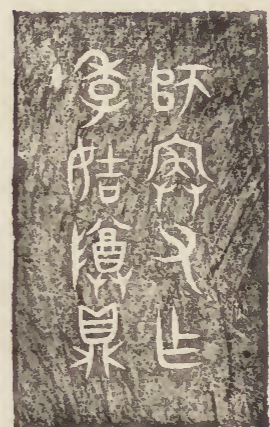 師寏父乍
季姞尊鼎